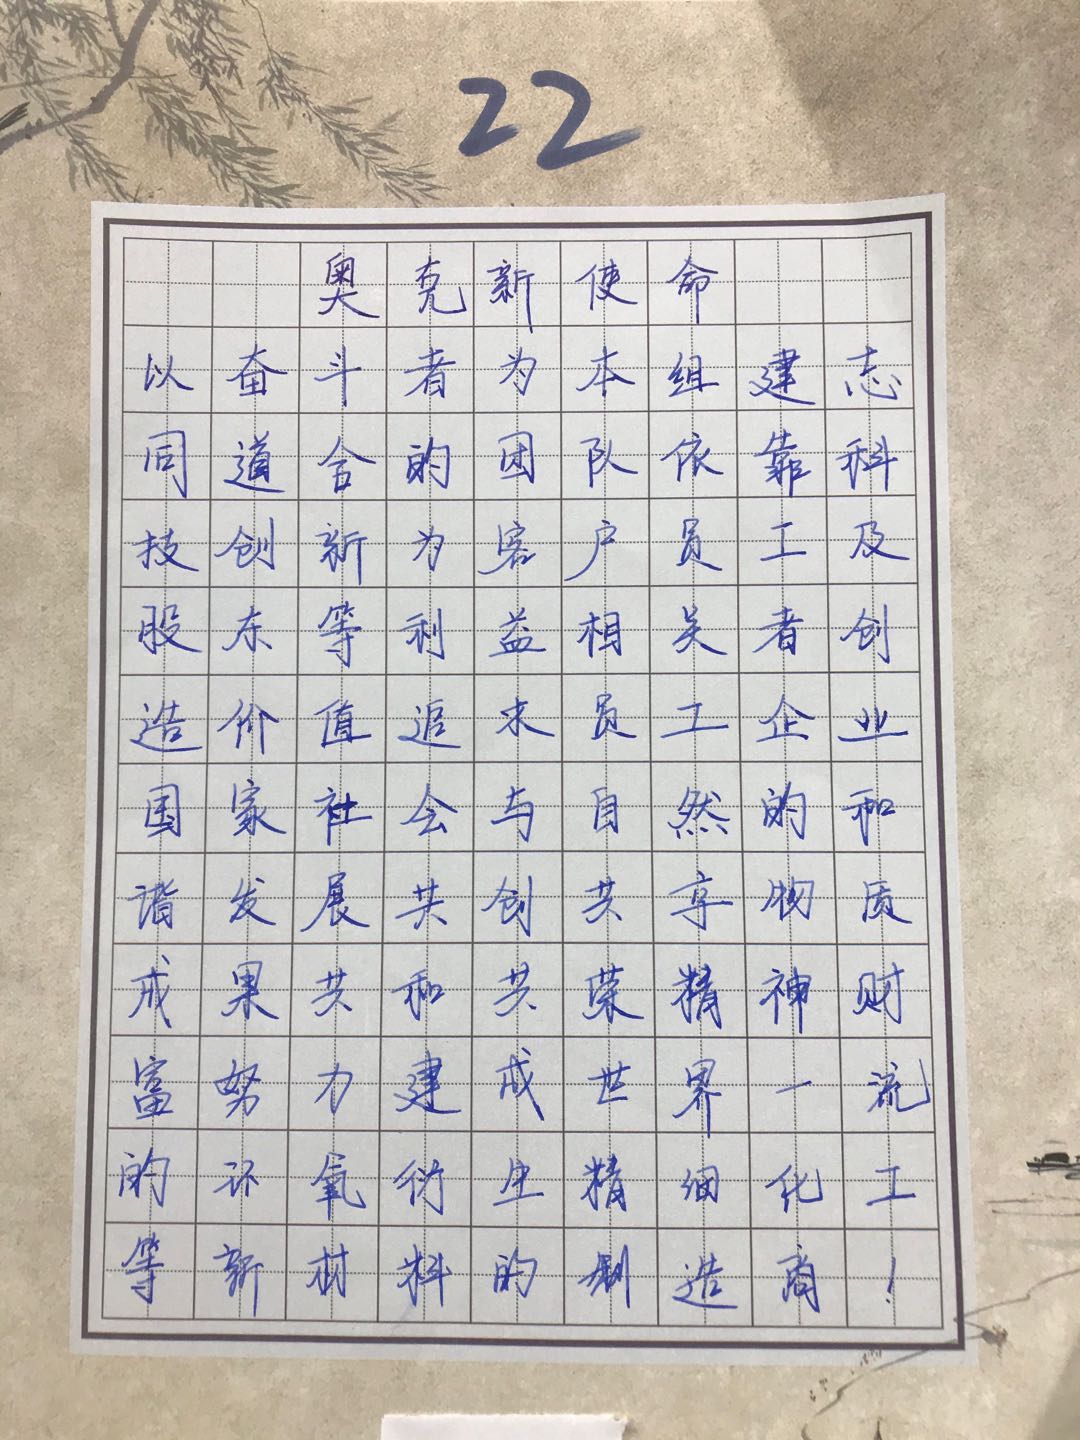 22
奥克新使命
以奋斗者为本组建志
同道合的团队依靠科
技创新为客户员工及
股东等利益相关者创
造价值追求员工企业
国家社会与自然的和
谐发展共创共享物质
成果共和共荣精神财
富努力建成世界一流
的环氧衍生精细化工
等新材料的制造商！